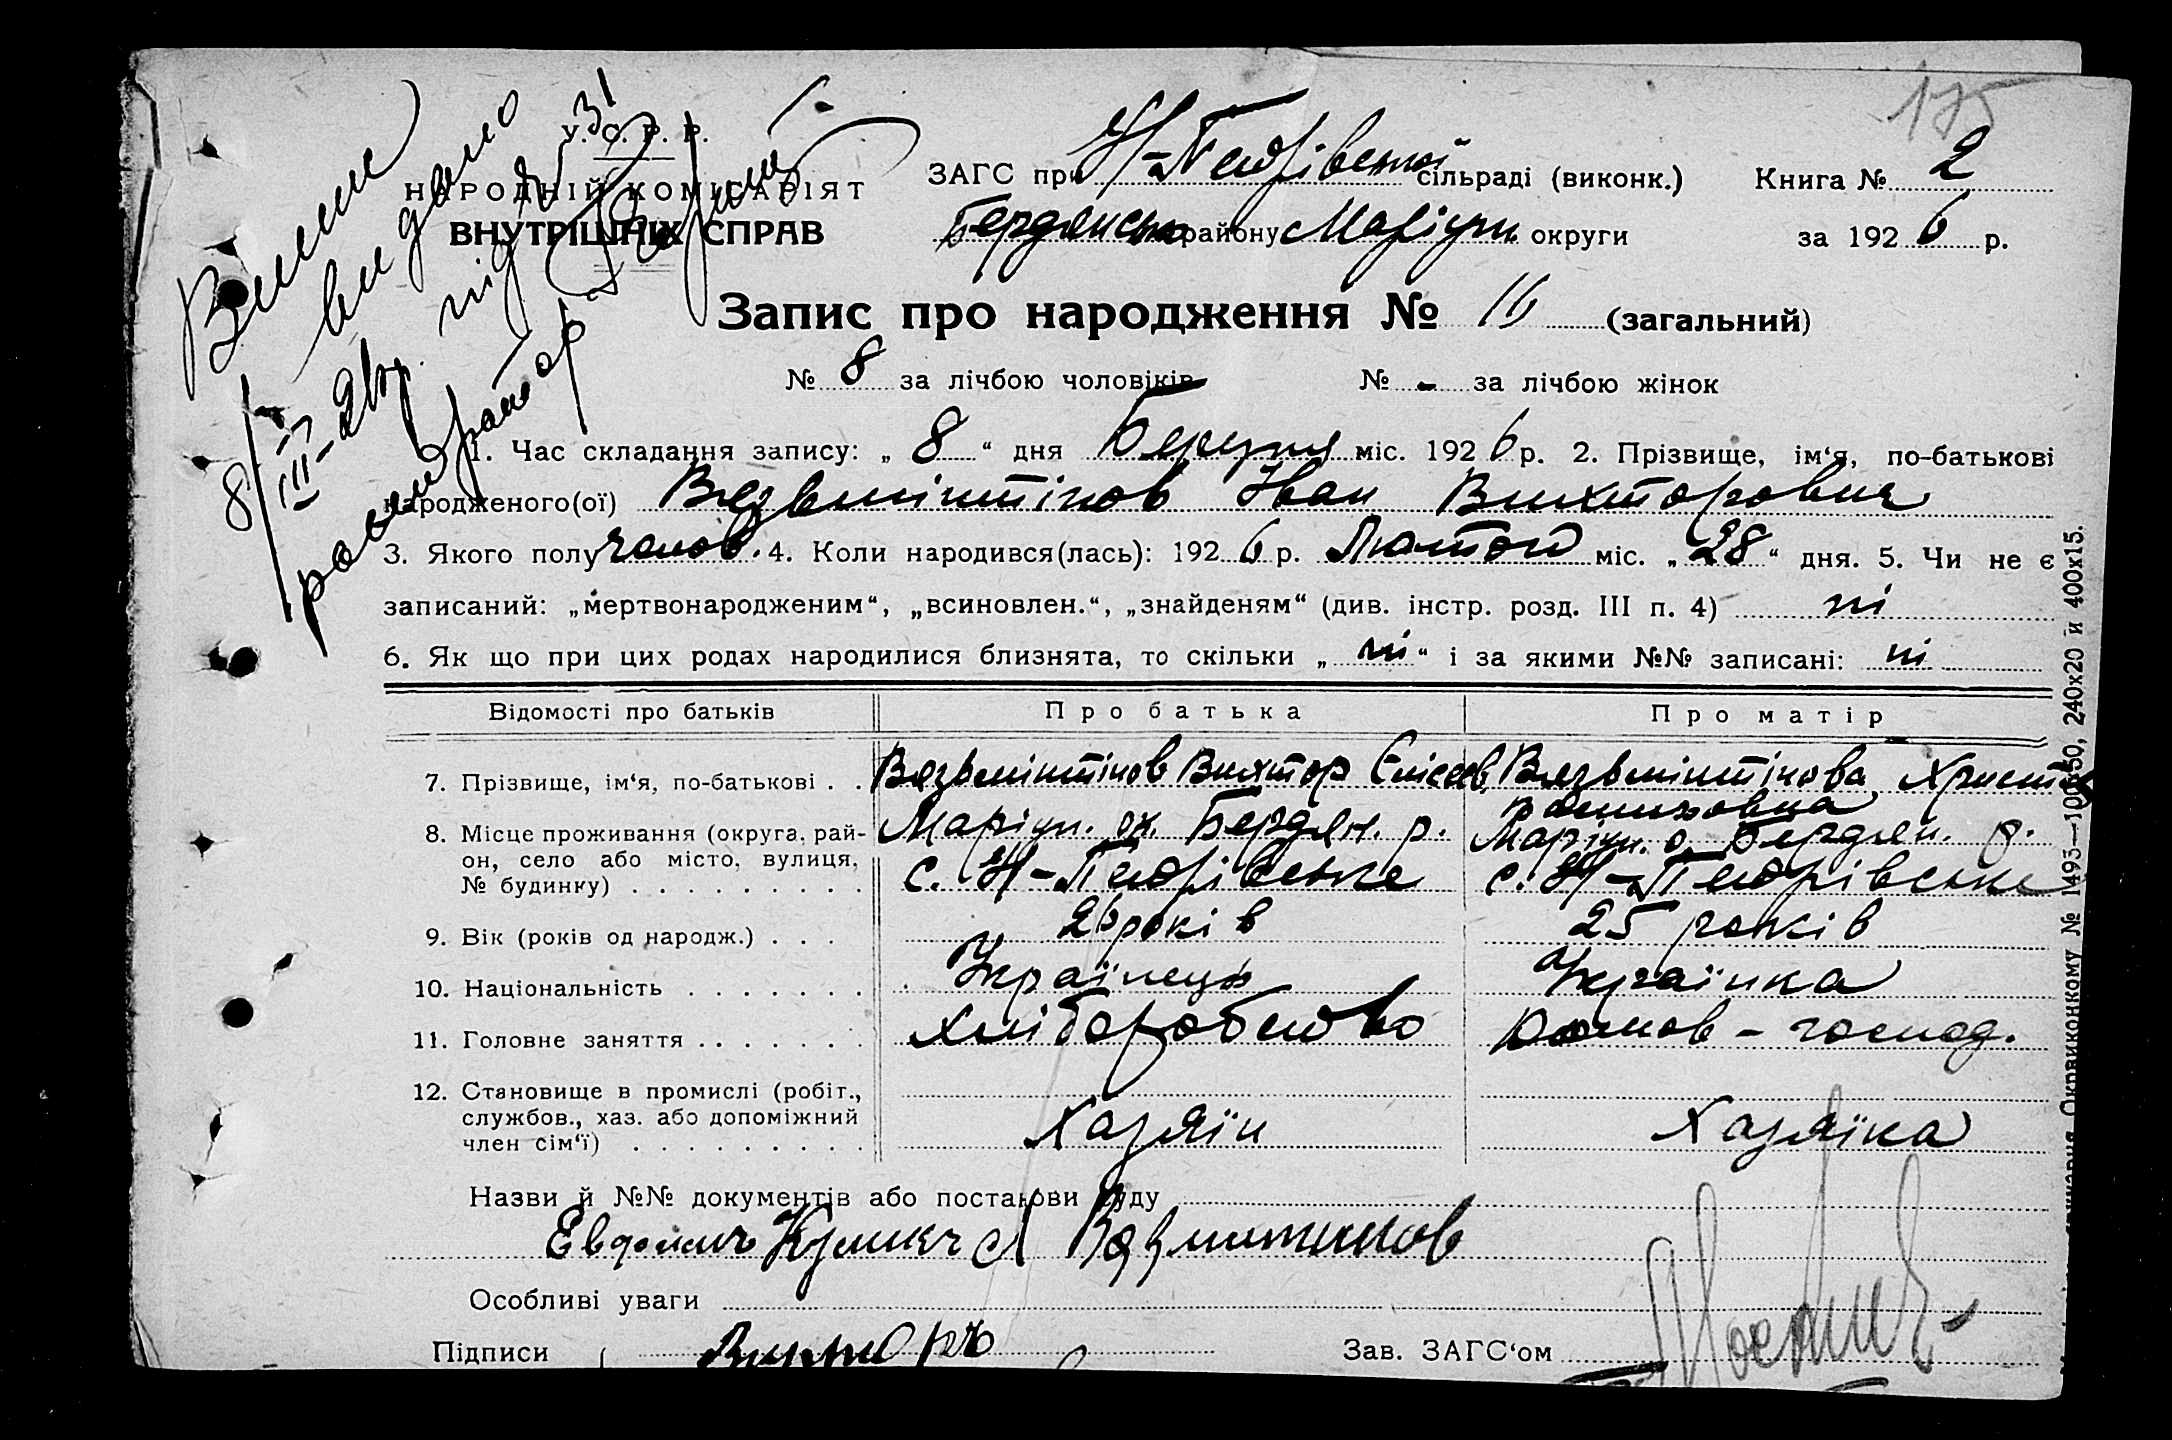 175
У. С. Р. Р.
НАРОДНІЙ КОМІСАРІЯТ
ВНУТРІШНІХ СПРАВ
Випис видано під № 31
8/III-26р.
ЗАГС при Н-Петрівській сільраді (виконк.) Книга № 2
Бердянсько району Маріуп. округи за 1926 р.
Запис про народження № 16 (загальний)
№ 8 за лічбою чоловіків № - за лічбою жінок
1. Час складання запису: „ 8 “ дня Березня міс. 1926 р. 2. Прізвище, ім‘я, по-батькові
народженого(ої) Вязьмінтінов Іван Вихторович
3. Якого полу чолов. 4. Коли народився(лась): 1926 р. Лютого міс. „ 28 “ дня. 5. Чи не є
записаний: „мертвонародженим“, „всиновлен.“, „знайденям“ (див. інстр. розд. III п. 4) ні
6. Як що при цих родах народилися близнята, то скільки „ ні “ і за якими №№ записані: ні
Відомості про батьків Про батька Про матір
7. Прізвище, ім‘я, по-батькові . . Вязьмінтінов Вихтор Єлісеєв. Вязьмінтінова Христ
8. Місце проживання (округа, рай- Маріуп. ок. Бердян. р. Маріуп. о. Бердян. р.
он, село або місто, вулиця,
№ будинку) . . . . . . . . . с. Н-Петрівське с. Н-Петрівське
9. Вік (років од народж.) . . . 26 років 25 років
10. Національність . . . . . . . Українець Українка
11. Головне заняття . . . . . . . Хліборобство Домов-господ.
12. Становище в промислі (робіт.,
службов., хаз. або допоміжний
член сім‘ї) . . . . . . . . . Хазяїн Хазяїка
Назви й №№ документів або постанови суду
Вязмитинов
Особливі уваги
Підписи Зав. ЗАГС‘ом
Окрвиконкому № 1493—10650, 240х20 и 400х15.